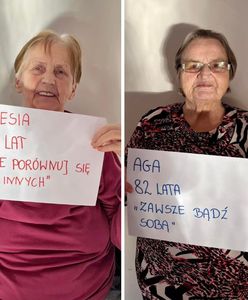 ESIA
LAT
E PORÓWNUJ SIĘ
INNYCH"
AGA
82 LATA
„ZAWSZE BĄDŹ
SOBĄ"